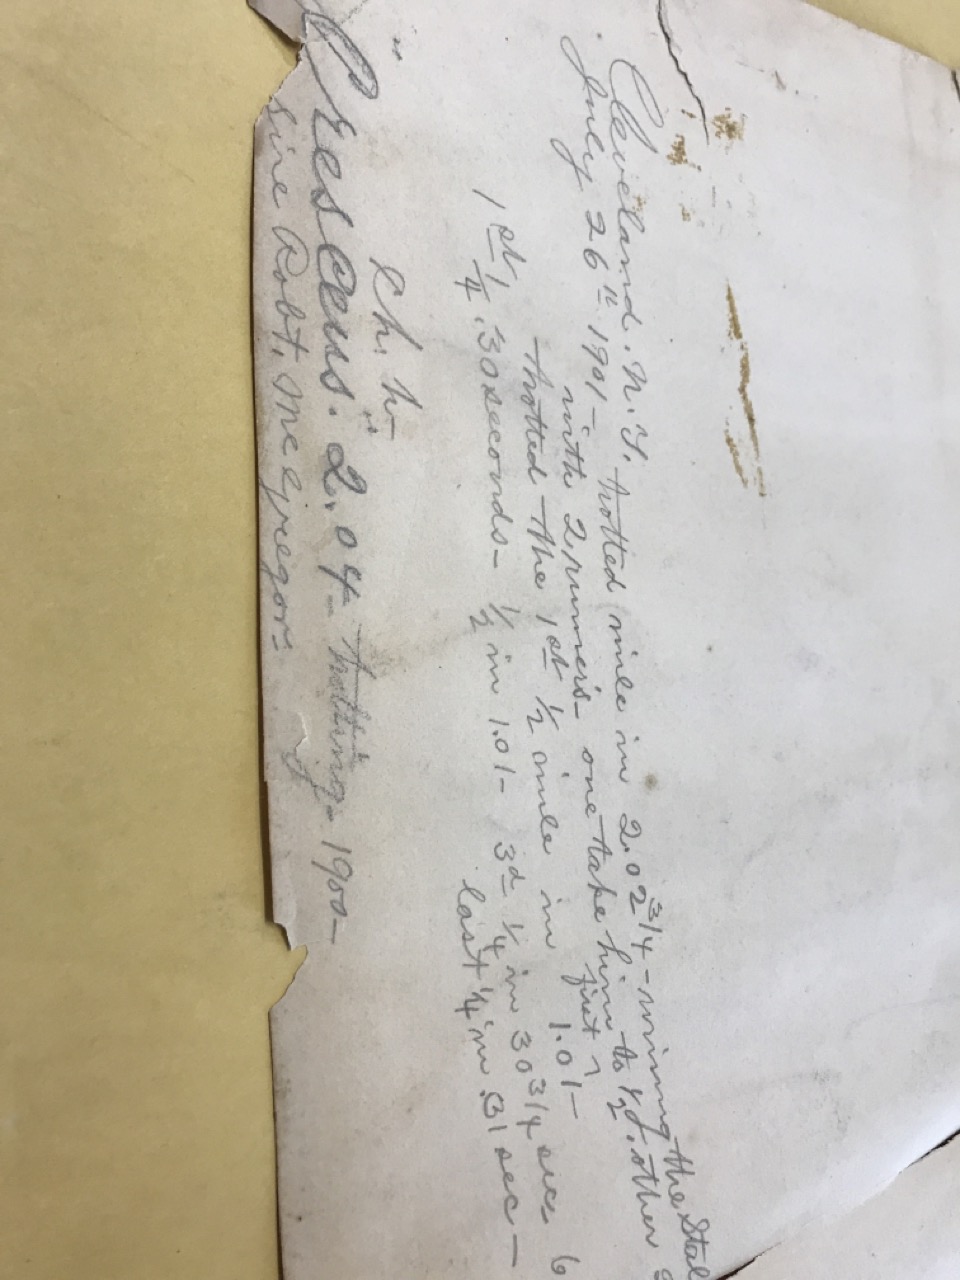 Cleveland. N.Y. trotted mile in 2.02 3/4 - wining the Stal
July 26th 1901 - with 2 runners - one take him to 1/2 . other
first
trotted the 1st 1/2 mile in 1.01 -
1st 1/4 . 30 seconds - 1/2 in 1.01 - 3d 1/4 in 30 3/4 secs
last 1/4 in 31 sec -
ch. h -
"Cresceus." 2.04 trotting - 1900 -
sire Robt. McGregor -